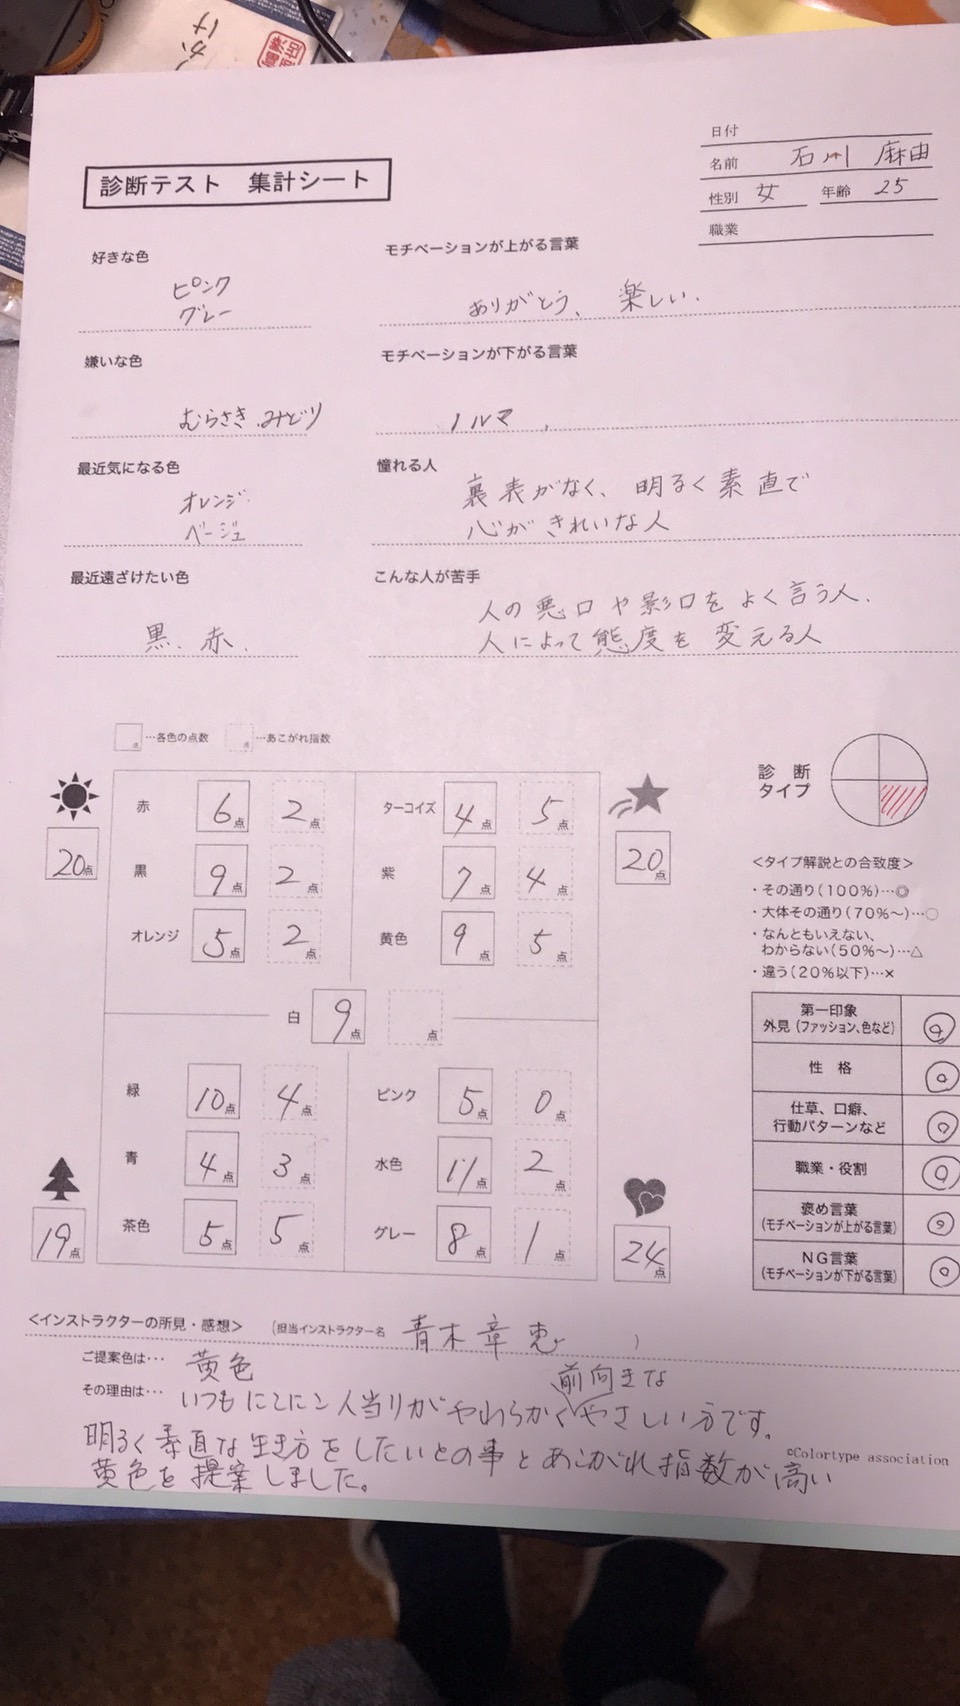 かけ
日付
名前 石川 麻由
性別 女 年齢 25
職業
診断テスト 集計シート
好きな色
ピンク
グレー
モチベーションが上がる言葉
ありがとう、楽しい.
嫌いな色
むらさき.みどり
モチベーションが下がる言葉
ノルマ、
最近気になる色
オレンジ
ベージュ
憧れる人
裏表がなく、明るく素直で
心がきれいな人
最近遠ざけたい色
黒、赤、
こんな人が苦手
人の悪口や影口をよく言う人.
人によって態度を変える人
点…各色の点数 点…あこがれ指数
20点
赤 6点 2点
黒 9点 2点
オレンジ 5点 2点
ターコイズ 4点 5点
紫 7点 4点
黄色 9点 5点
20点
白 9点 点
緑 10点 4点
青 4点 3点
茶色 5点 5点
19点
ピンク 5点 0点
水色 11点 2点
グレー 8点 1点
24点
診断
タイプ
<タイプ解説との合致度>
・その通り(100%)…◎
・大体その通り(70%〜)…○
・なんともいえない、
わからない(50%〜)…△
・違う(20%以下)…×
第一印象
外見(ファッション、色など) ◎
性格 ◎
仕草、口癖、
行動パターンなど ◎
職業・役割 ◎
褒め言葉
(モチベーションが上がる言葉) ◎
NG言葉
(モチベーションが下がる言葉) ◎
<インストラクターの所見・感想> (担当インストラクター名 青木章恵 )
ご提案色は… 黄色
前向きな
その理由は… いつもにこにこ人当りがやわらかくやさしい方です。
明るく素直な生き方をしたいとの事とあこがれ指数が高い
黄色を提案しました。
©Colortype association